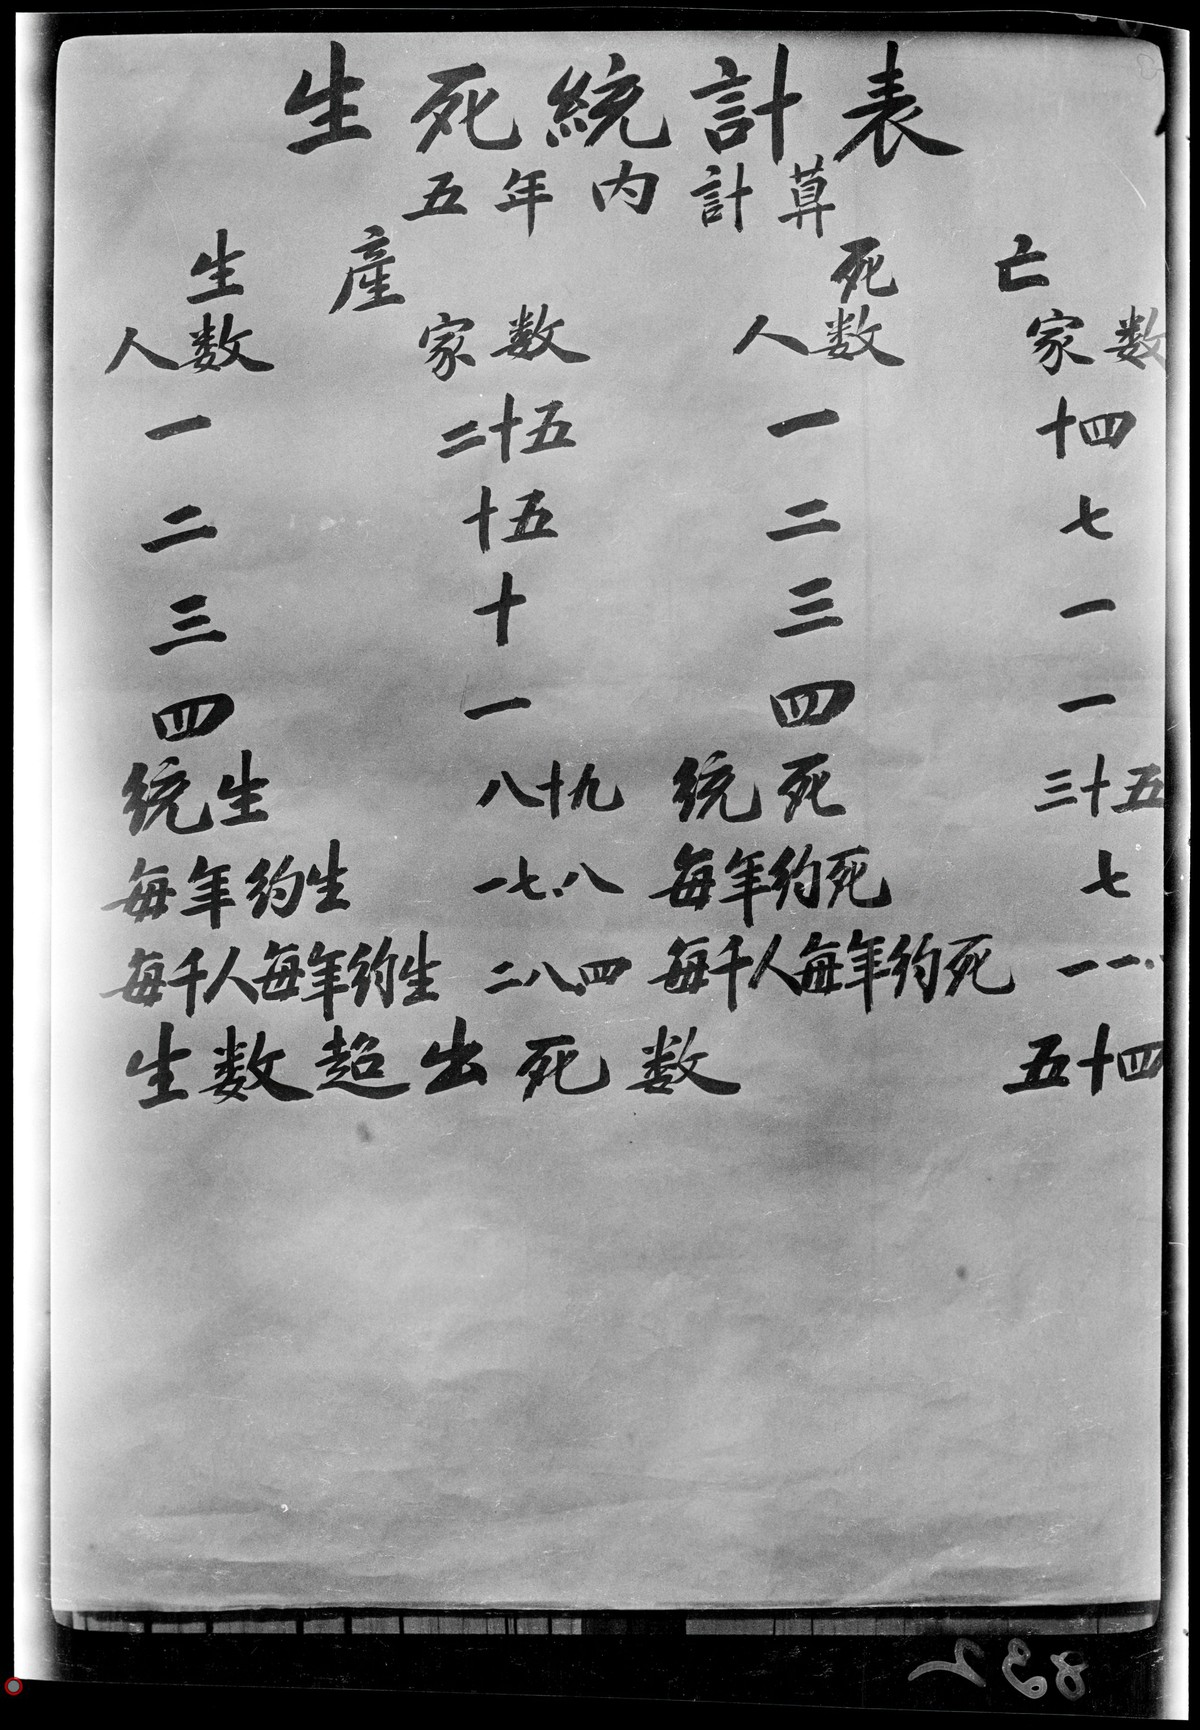 生死統計表
五年内計算
生產 死亡
人数 家数 人数 家数
一 二十五 一 十四
二 十五 二 七
三 十 三 一
四 一 四 一
统生 八十九 统死 三十五
每年约生 一七.八 每年约死 七
每千人每年约生 二八.四 每千人每年约死 一一.
生数超出死数 五十四
832